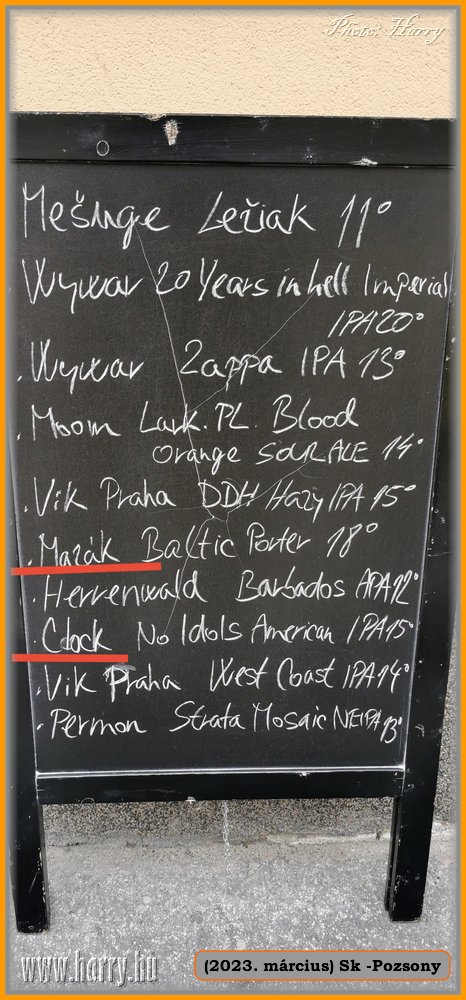 Photo: Harry
Mešuge Ležiak 11°
Wywar 20 Years in hell Imperial
IPA 20°
. Wywar Zappa IPA 13°
. Moom Lark. PL. Blood
Orange SOUR ALE 14°
. Vik Praha DDH Hazy IPA 15°
. Mazák Baltic Porter 18°
. Herrenwald Barbados APA 12°
. Clock No Idols American IPA 15°
. Vik Praha West Coast IPA 14°
. Permon Strata Mosaic NEIPA 13°
www.harry.hu
(2023. március) Sk -Pozsony